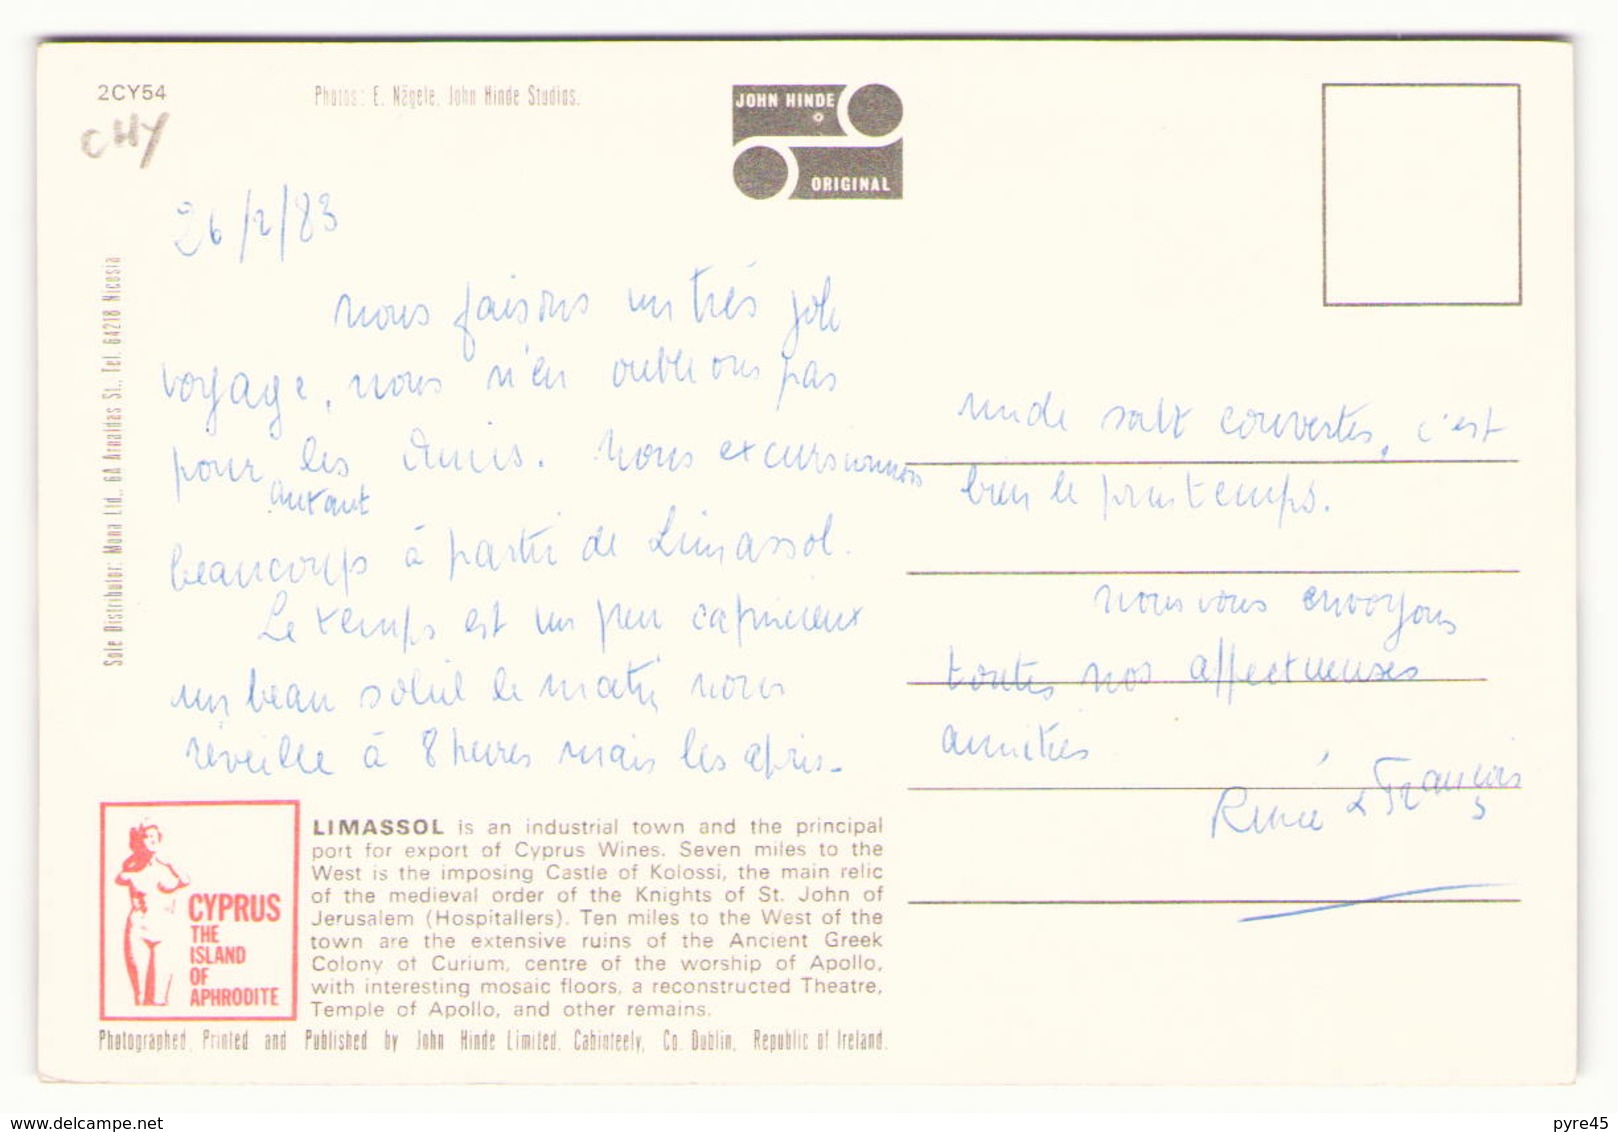 2CY54
Photos: E. Nägele, John Hinde Studios.
JOHN HINDE
ORIGINAL
CHY
26/2/83
Nous faisons un très joli
voyage, nous n'en oublions pas
pour autant les amis. Nous excursionnons
beaucoup à partir de Limassol.
Le temps est un peu capricieux
un beau soleil le matin nous
réveille à 8 heures mais les après-
midi sont couvertes, c'est
bien le printemps.
Nous vous envoyons
toutes nos affectueuses
amitiés
Renée & François
Sole Distributor: Mona Ltd., 6A Arnaldas St., Tel. 64218 Nicosia
CYPRUS
THE
ISLAND
OF
APHRODITE
LIMASSOL is an industrial town and the principal
port for export of Cyprus Wines. Seven miles to the
West is the imposing Castle of Kolossi, the main relic
of the medieval order of the Knights of St. John of
Jerusalem (Hospitallers). Ten miles to the West of the
town are the extensive ruins of the Ancient Greek
Colony of Curium, centre of the worship of Apollo,
with interesting mosaic floors, a reconstructed Theatre,
Temple of Apollo, and other remains.
Photographed, Printed and Published by John Hinde Limited, Cabinteely, Co. Dublin, Republic of Ireland.
www.delcampe.net
pyre45